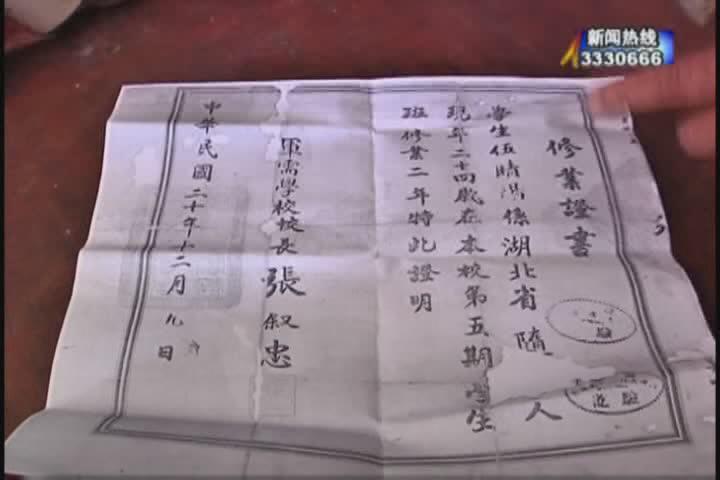 新闻热线
3330666
修業證書
學生伍晴陽係湖北省隨 人
現年二十四歲在本校第五期學生
班修業二年特此證明
軍需學校校長張叙忠
中華民國二十年十二月九日
驗
驗